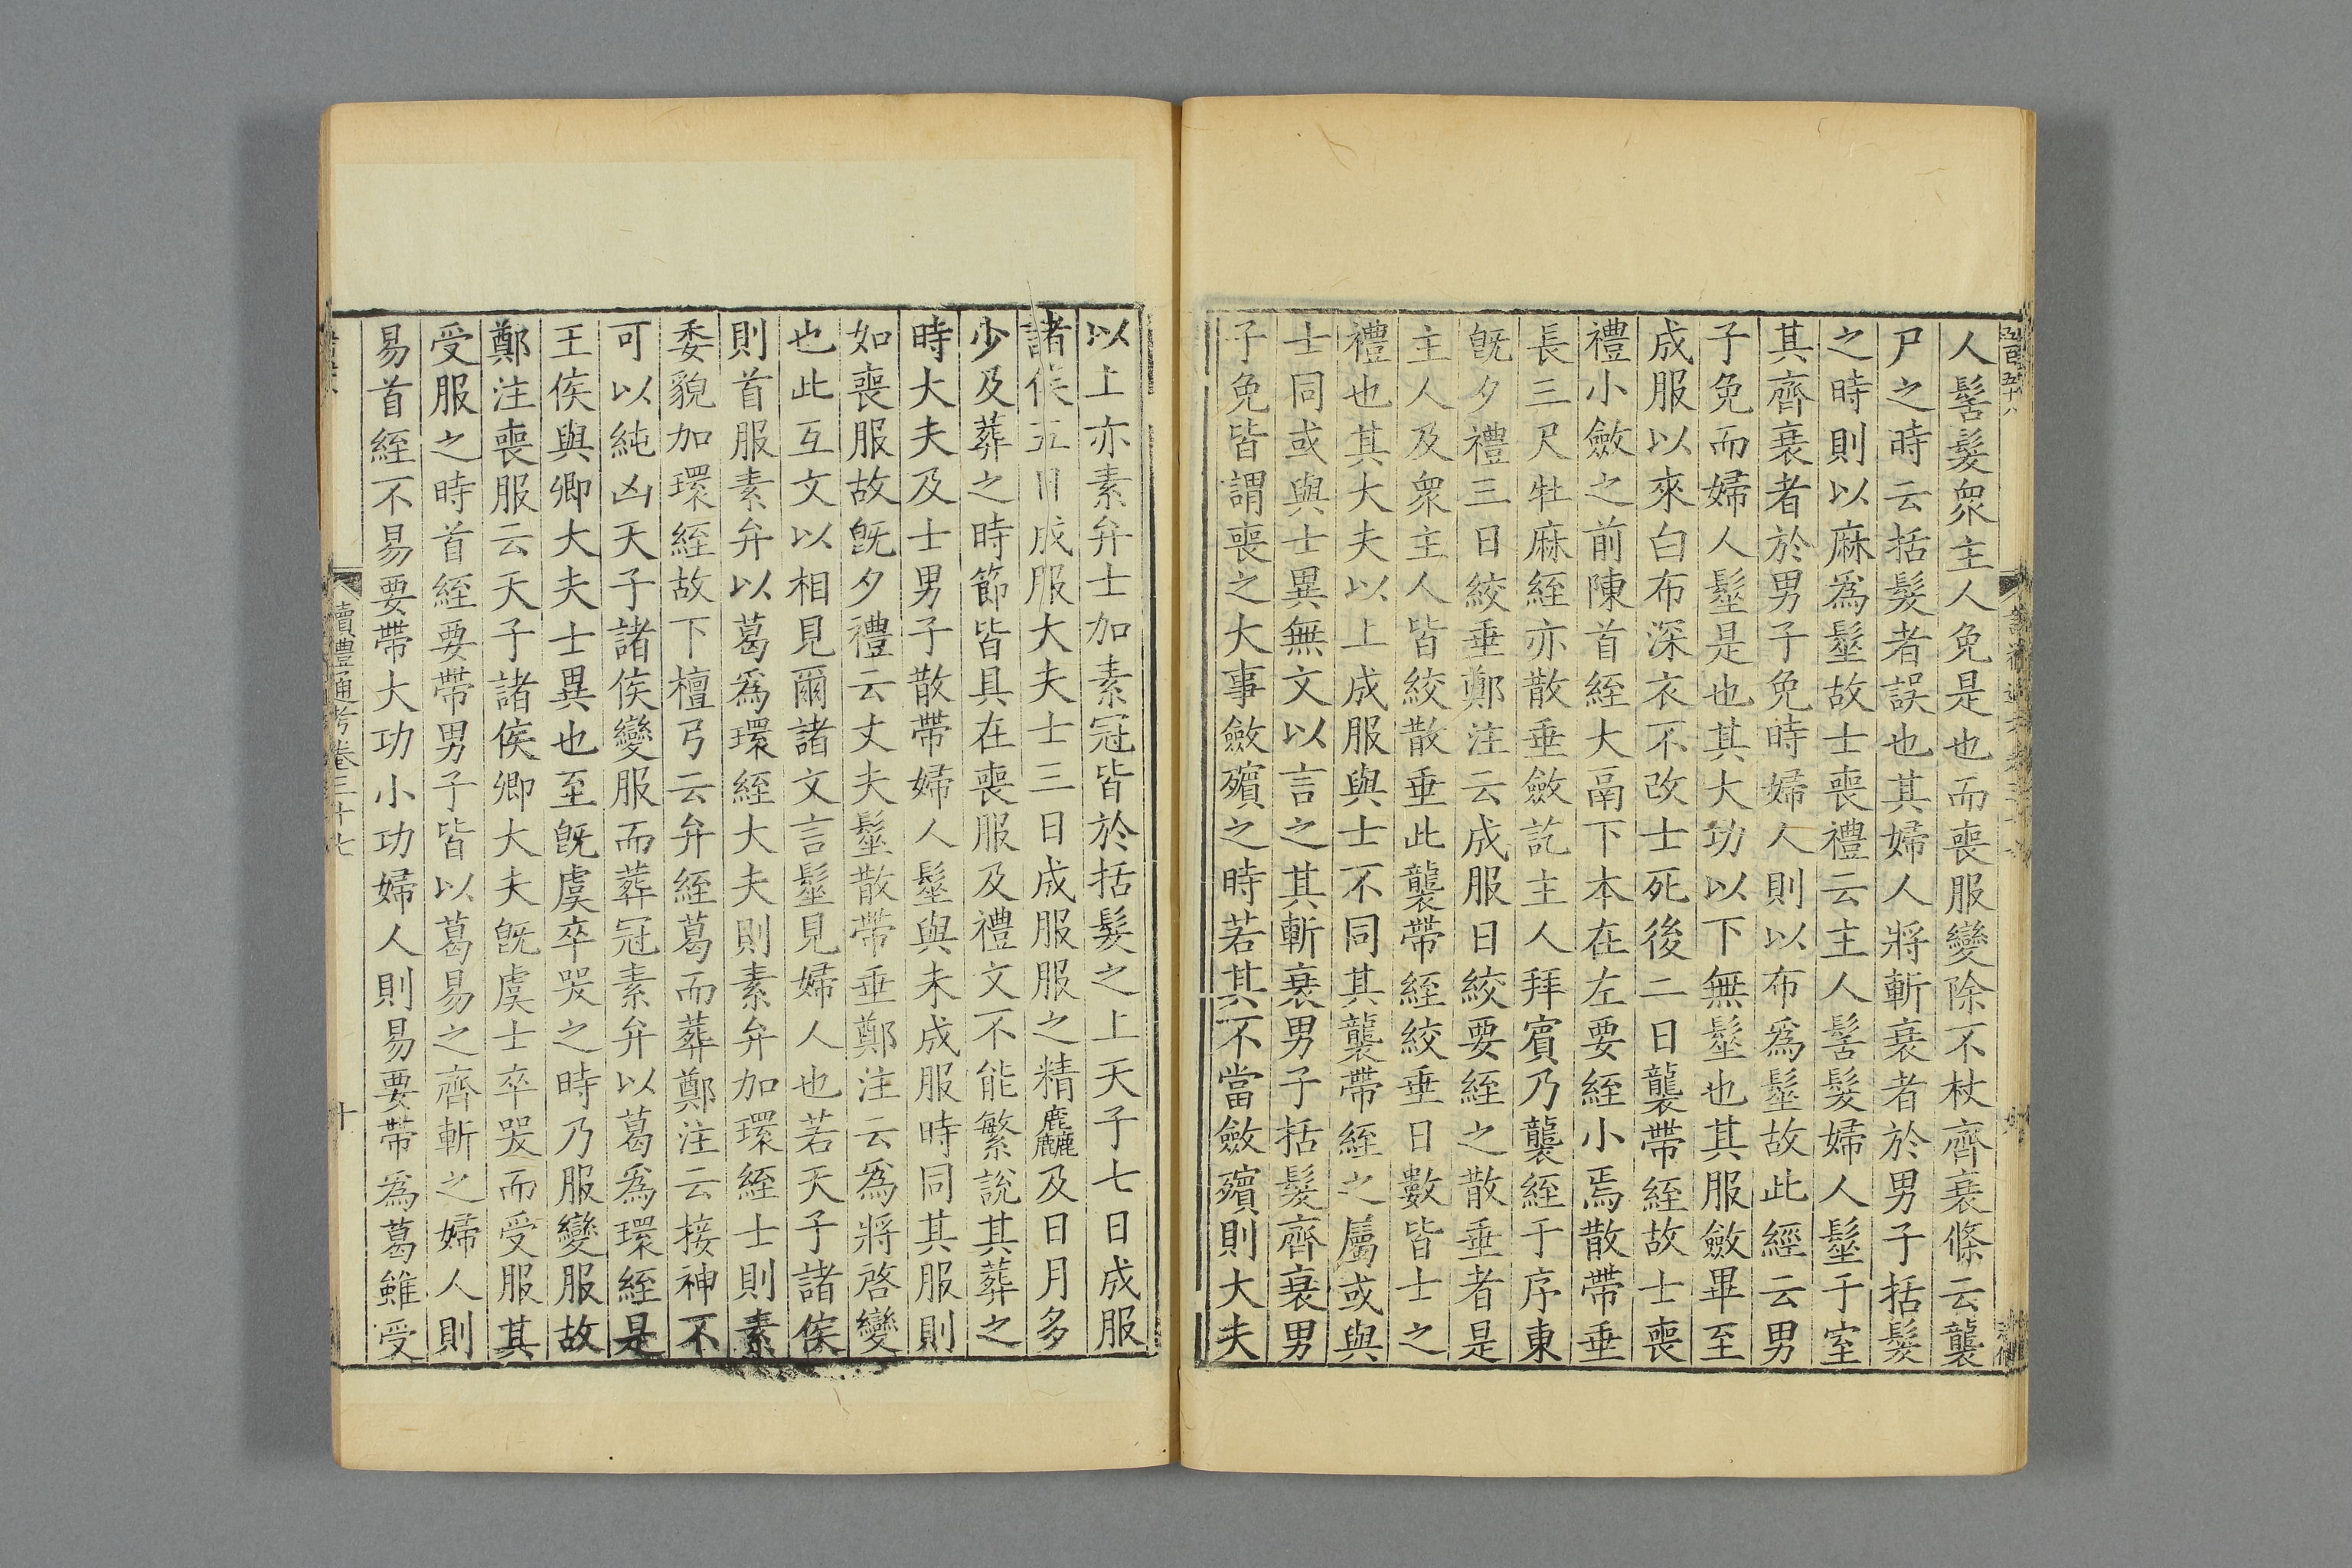 人髺髮衆主人免是也而喪服變除不杖齊衰條云襲
尸之時云括髮者誤也其婦人將斬衰者於男子括髮
之時則以麻爲髽故士喪禮云主人髺髮婦人髽于室
其齊衰者於男子免時婦人則以布爲髽故此經云男
子免而婦人髽是也其大功以下無髽也其服斂畢至
成服以來白布深衣不改士死後二日襲帶絰故士喪
禮小斂之前陳首絰大鬲下本在左要絰小焉散帶垂
長三尺牡麻絰亦散垂斂訖主人拜賓乃襲絰于序東
旣夕禮三日絞垂鄭注云成服日絞要絰之散垂者是
主人及衆主人皆絞散垂此襲帶絰絞垂日數皆士之
禮也其大夫以上成服與士不同其襲帶絰之屬或與
士同或與士異無文以言之其斬衰男子括髮齊衰男
子免皆謂喪之大事斂殯之時若其不當斂殯則大夫
以上亦素弁士加素冠皆於括髮之上天子七日成服
諸侯五日成服大夫士三日成服服之精麤及日月多
少及葬之時節皆具在喪服及禮文不能繁說其葬之
時大夫及士男子散帶婦人髽與未成服時同其服則
如喪服故旣夕禮云丈夫髽散帶垂鄭注云爲將啓變
也此互文以相見爾諸文言髽見婦人也若天子諸侯
則首服素弁以葛爲環絰大夫則素弁加環絰士則素
委貌加環絰故下檀弓云弁絰葛而葬鄭注云接神不
可以純凶天子諸侯變服而葬冠素弁以葛爲環絰是
王侯與卿大夫士異也至旣虞卒哭之時乃服變服故
鄭注喪服云天子諸侯卿大夫旣虞士卒哭而受服其
受服之時首絰要帶男子皆以葛易之齊斬之婦人則
易首絰不易要帶大功小功婦人則易要帶爲葛雖受
讀禮通考卷三十七
十